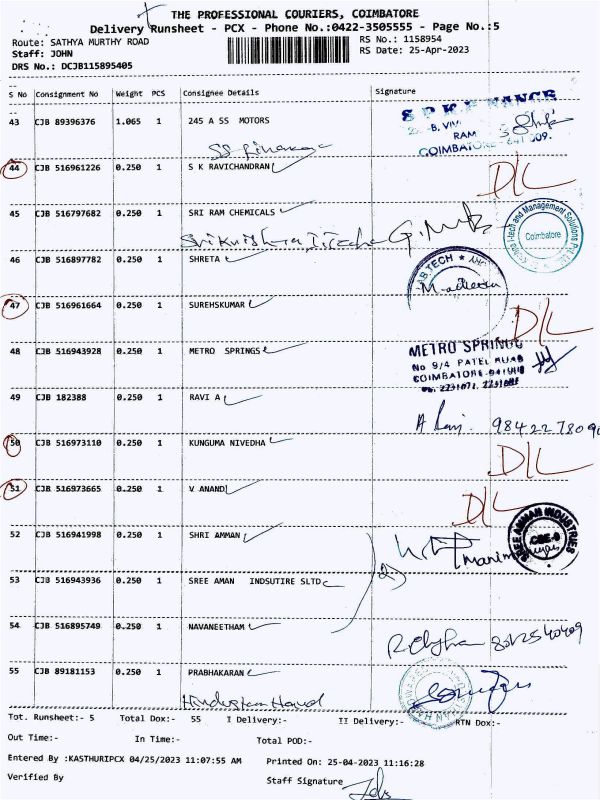 THE PROFESSIONAL COURIERS, COIMBATORE
Delivery Runsheet - PCX - Phone No.:0422-3505555 - Page No.:5
Route: SATHYA MURTHY ROAD
RS No.: 1158954
Staff: JOHN
RS Date: 25-Apr-2023
DRS No.: DCJB115895405
S No Consignment No Weight PCS Consignee Details Signature
43 CJB 89396376 1.065 1 245 A SS MOTORS
SS Finance
COIMBATORE - 641 009.
44 CJB 516961226 0.250 1 S K RAVICHANDRAN
D/L
45 CJB 516797682 0.250 1 SRI RAM CHEMICALS
Coimbatore
46 CJB 516897782 0.250 1 SHRETA
47 CJB 516961664 0.250 1 SUREHSKUMAR
D/L
48 CJB 516943928 0.250 1 METRO SPRINGS
METRO SPRINGS
No 9/4 PATEL ROAD
COIMBATORE-641009
49 CJB 182388 0.250 1 RAVI A
A Ravi. 984227809
50 CJB 516973110 0.250 1 KUNGUMA NIVEDHA
D/L
51 CJB 516973665 0.250 1 V ANAND
D/L
52 CJB 516941998 0.250 1 SHRI AMMAN
SREE AMMAN INDUSTRIES
CBE-9
53 CJB 516943936 0.250 1 SREE AMAN INDSUTIRE SLTD
54 CJB 516895749 0.250 1 NAVANEETHAM
55 CJB 89181153 0.250 1 PRABHAKARAN
Hindustan Hand
Tot. Runsheet:- 5 Total Dox:- 55 I Delivery:- II Delivery:- RTN Dox:-
Out Time:- In Time:- Total POD:-
Entered By :KASTHURIPCX 04/25/2023 11:07:55 AM Printed On: 25-04-2023 11:16:28
Verified By Staff Signature